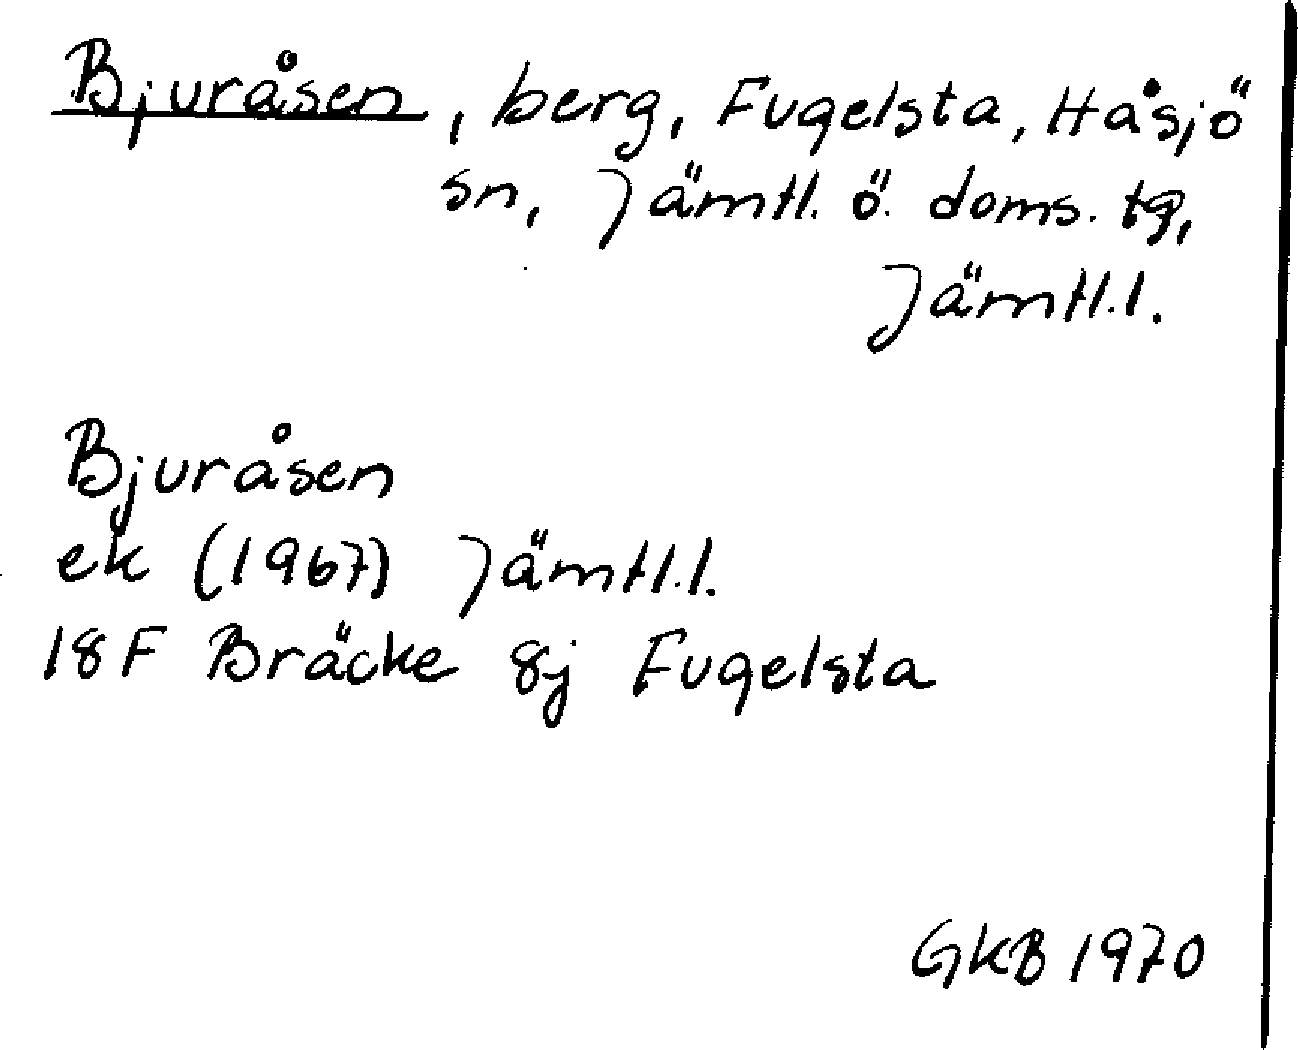 Bjuråsen, berg, Fugelsta, Håsjö
sn, Jämtl. ö. doms. tg,
Jämtl.l.
Bjuråsen
ek (1967) Jämtl.l.
18F Bräcke 8j Fugelsta
GKB 1970